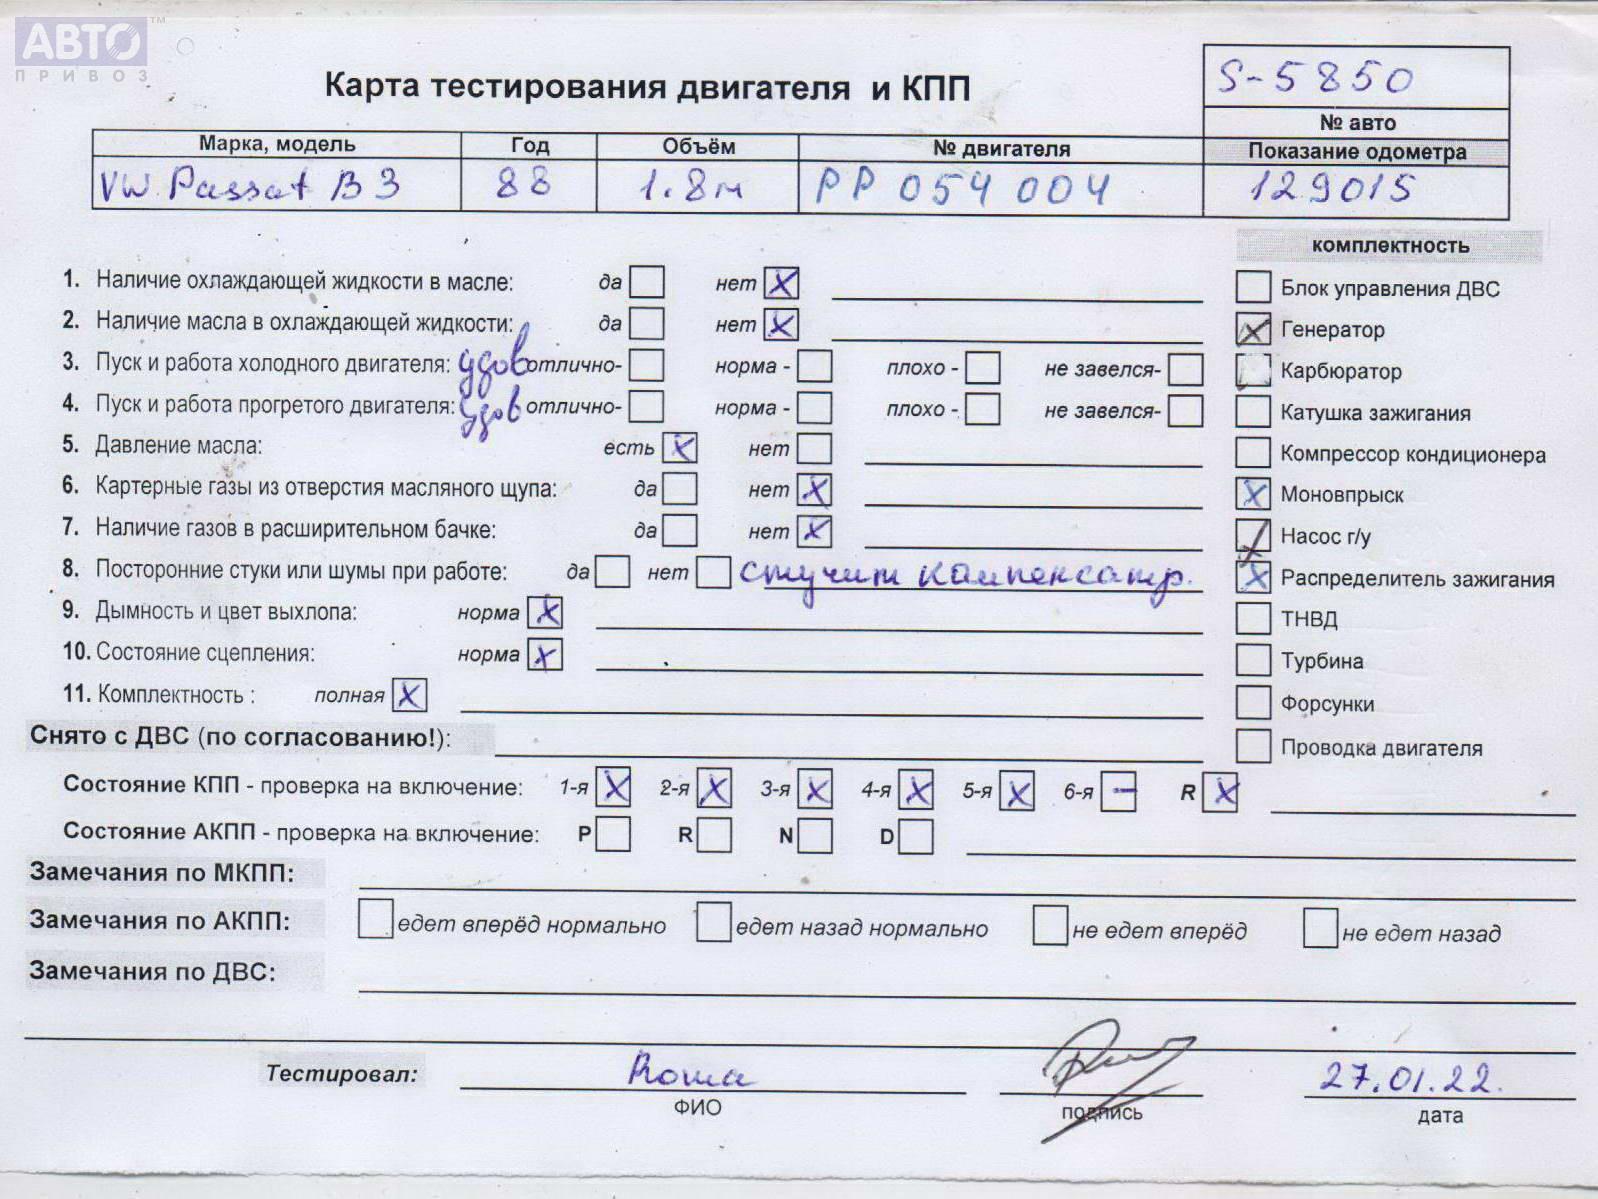 АВТО ™
ПРИВОЗ
S-5850
Карта тестирования двигателя и КПП
№ авто
Марка, модель Год Объём № двигателя Показание одометра
VW Passat B3 88 1.8м PP 054 004 129015
комплектность
1. Наличие охлаждающей жидкости в масле: да нет X
Блок управления ДВС
2. Наличие масла в охлаждающей жидкости: да нет X
X Генератор
3. Пуск и работа холодного двигателя: удов отлично- норма - плохо - не завелся-
Карбюратор
4. Пуск и работа прогретого двигателя: удов отлично- норма - плохо - не завелся-
Катушка зажигания
5. Давление масла: есть X нет
Компрессор кондиционера
6. Картерные газы из отверстия масляного щупа: да нет X
X Моновпрыск
7. Наличие газов в расширительном бачке: да нет X
Насос г/у
8. Посторонние стуки или шумы при работе: да нет стучит компенсатр.
X Распределитель зажигания
9. Дымность и цвет выхлопа: норма X
ТНВД
10. Состояние сцепления: норма X
Турбина
11. Комплектность : полная X
Форсунки
Снято с ДВС (по согласованию!):
Проводка двигателя
Состояние КПП - проверка на включение: 1-я X 2-я X 3-я X 4-я X 5-я X 6-я – R X
Состояние АКПП - проверка на включение: P R N D
Замечания по МКПП:
Замечания по АКПП: едет вперёд нормально едет назад нормально не едет вперёд не едет назад
Замечания по ДВС:
Тестировал: Рома 27.01.22.
ФИО подпись дата